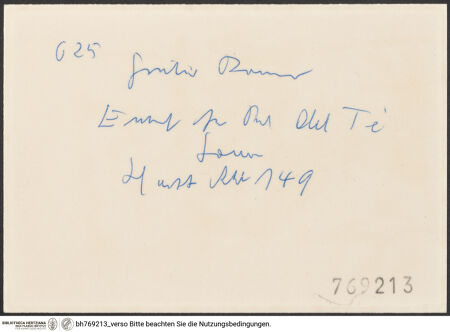 625
Giulio Romano
Entwf für Pal del Té
Louvre
Hartt Abb 149
769213
BIBLIOTHECA HERTZIANA
MAX-PLANCK-INSTITUT
bh769213_verso Bitte beachten Sie die Nutzungsbedingungen.